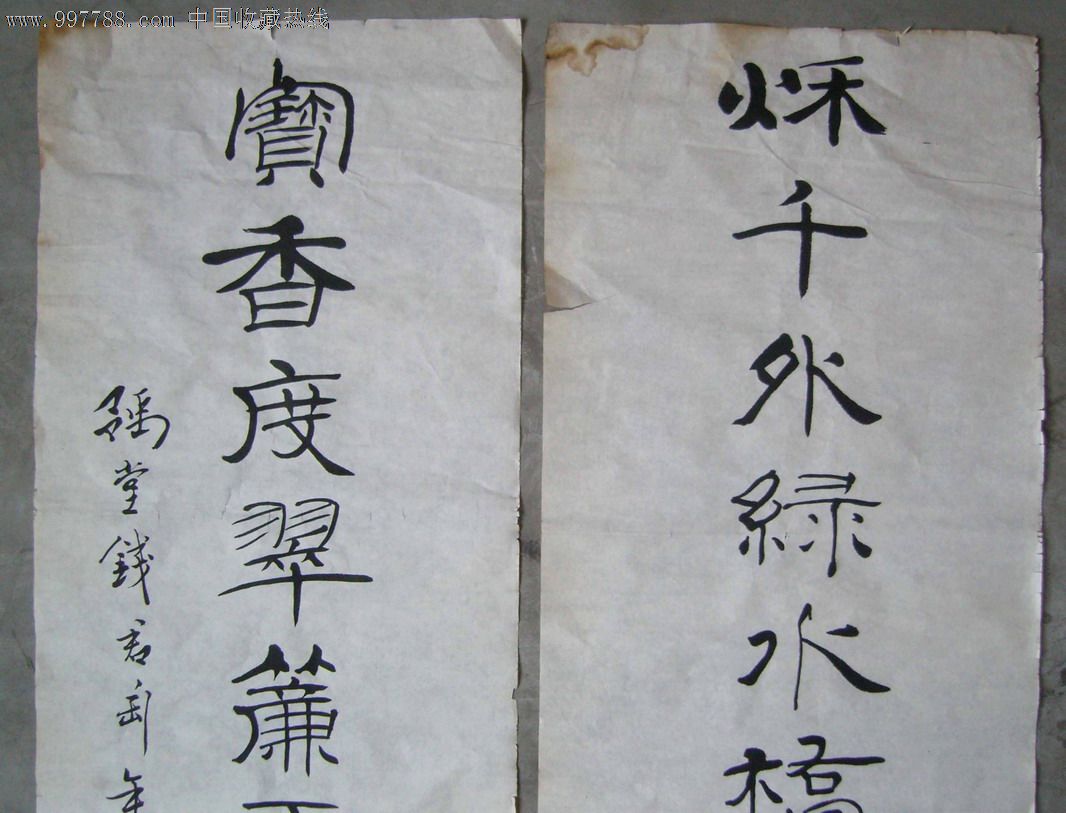 www.997788.com 中国收藏热线
秌千外緑水橋
寶香度翠簾
豫堂錢君匋年